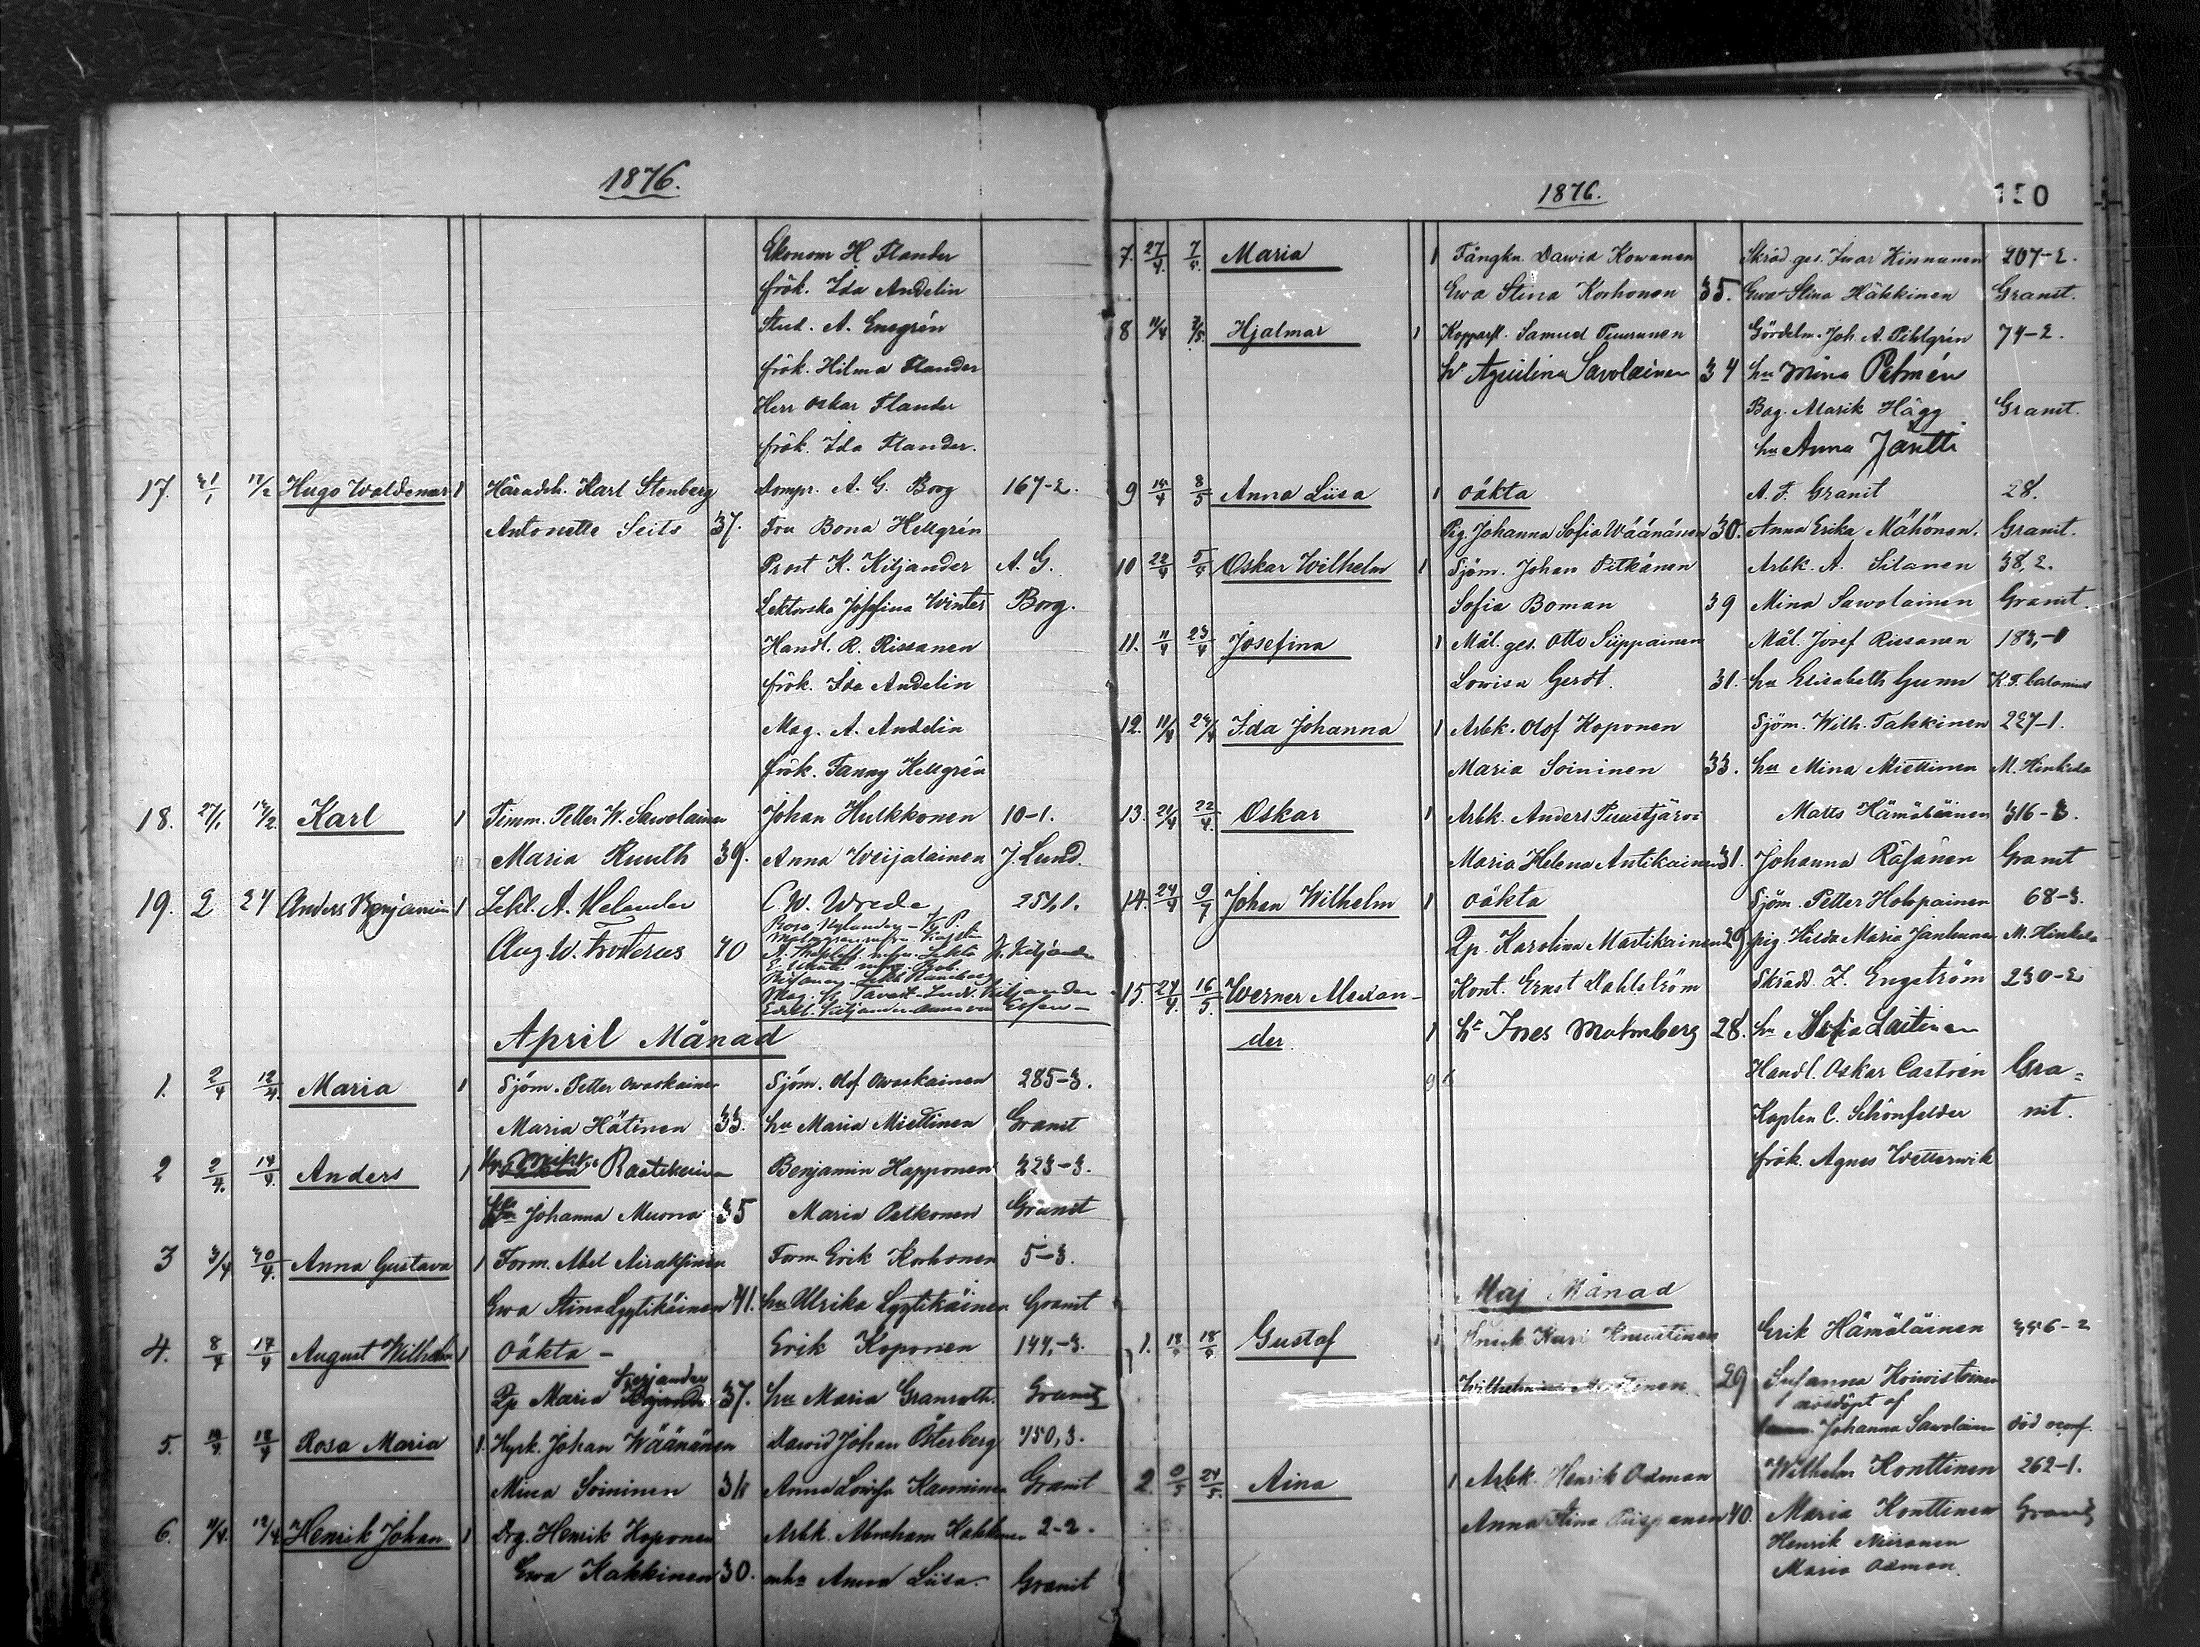 1876.
Ekonom H Flander
frök. Ida Andelin
Stud. A. Enegrén
frök. Hilma Flander
Herr Oskar Flander
frök. Ida Flander.
17. 31/1 17/2 Hugo Waldemar 1 Häradsh. Karl Stenberg Dompr. A. G. Borg 167-2.
Antonette Seits 37. Fru Bona Hellgrén
Prost K. Kiljander A. G.
Lektorska Josefina Winter Borg.
Handl. R. Rissanen
frök. Ida Andelin
Mag. A. Andelin
frök. Fanny Hellgrén
18. 27/1 14/2 Karl 1 Timm. Petter W. Sawolainen Johan Hulkkonen 10-1.
Maria Ruuth 39. Anna Weijalainen J. Lund.
19. 2 24 Anders Benjamin 1 Lekt. A. Melander C. W. Wrede 251,1.
Aug W. Froterus 40
April Månad
1. 2/4 12/4 Maria 1 Sjöm. Petter Owaskainen Sjöm. Olof Owaskainen 285-3.
Maria Hätinen 33. hu Maria Miettinen Granit
2 2/4 14/4 Anders 1 Raatikainen Benjamin Happonen 323-3.
Johanna Muona 35 Maria Pelkonen Granit
3 3/4 30/4 Anna Gustava 1 Form. Abel Airaksinen Form Erik Korhonen 5-3.
Ewa Stina Lyytikäinen 41. hu Ulrika Lyytikäinen Granit
4. 8/4 17/4 August Wilhelm 1 Oäkta - Erik Koponen 144,-3.
Pp Maria 37. hu Maria Granroth. Granit
5. 14/4 18/4 Rosa Maria 1. Hyrk. Johan Wäänänen Dawid Johan Österberg 450,3.
Mina Soininen 36 Anna Lowisa Kanninen Granit
6. 11/4. 12/4 Henrik Johan 1 Drg. Henrik Koponen Arbk. Abraham 2-2.
Ewa Kakkinen 30. mhu Anna Liisa. Granit
1876. 150
7. 27/4. 7/5. Maria 1 Fångkn. Dawid Kowanen Skräd. ges. Iwar Kinnunen 207-2.
Ewa Stina Korhonen 35. Ewa Stina Häkkinen Granit.
8 11/4 7/5. Hjalmar 1 Kopparsl. Samuel Tuurunen Gördelm. Joh A. Pihlgrén 74-2.
hr Agustina Savolainen 34 hu Mina Pelmén
Bag. Alarik Hägg Granit.
hu Anna Jäntti
9 14/4 8/5 Anna Liisa 1 Oäkta A. F. Granit 28.
Pig. Johanna Sofia Wäänänen 30. Anna Erika Mähönen. Granit.
10 22/4 Oskar Wilhelm 1 Sjöm. Johan Pitkänen Arbk. A. Silanen 38,2.
Sofia Boman 39 Mina Sawolainen Granit.
11. 11/4 23/4 Josefina 1 Mål. ges. Otto Siippainen Mål. Josef Rissanen 183,-1
Lowisa Gerdt. 31. hu Elisabeth Gumm
12. 11/4 23/4 Ida Johanna 1 Arbk. Olof Koponen Sjöm. Wilh. Tahkinen 227-1.
Maria Soininen 33. hu Mina Miettinen M. Hinkula
13. 21/4 22/4. Oskar 1 Arbk. Anders Puustjärvi Matts Hämäläinen 316-3.
Maria Helena Antikainen 31. Johanna Räsänen Granit
14. 24/4 9/7 Johan Wilhelm 1 Oäkta Sjöm. Petter Holopainen 68-3.
Pp. Karolina Martikainen 29 pig Hilda Maria Janhunen M. Hinkula
15. 24/4. 16/5. Werner Alexan- Kont. Ernst Dahlström Skrädd. Z. Engström 230-2
der. 1 hr Ines Malmberg 28. hu Sofia Laitinen
Handl. Oskar Castrén Gra-
Kapten C. Schönfelder nit.
frök. Agnes Wetterwik
Maj Månad
1. Gustaf 1 Erik Hämäläinen 356-2
29 Susanna Koiwistoinen
nöddöpt af
Johanna Savolainen
2. 24/5. Aina 1 Arbk. Henrik Odman Wilhelm Konttinen 262-1.
Anna Stina 40. Maria Konttinen Granit
Henrik Niiranen
Maria Odman.